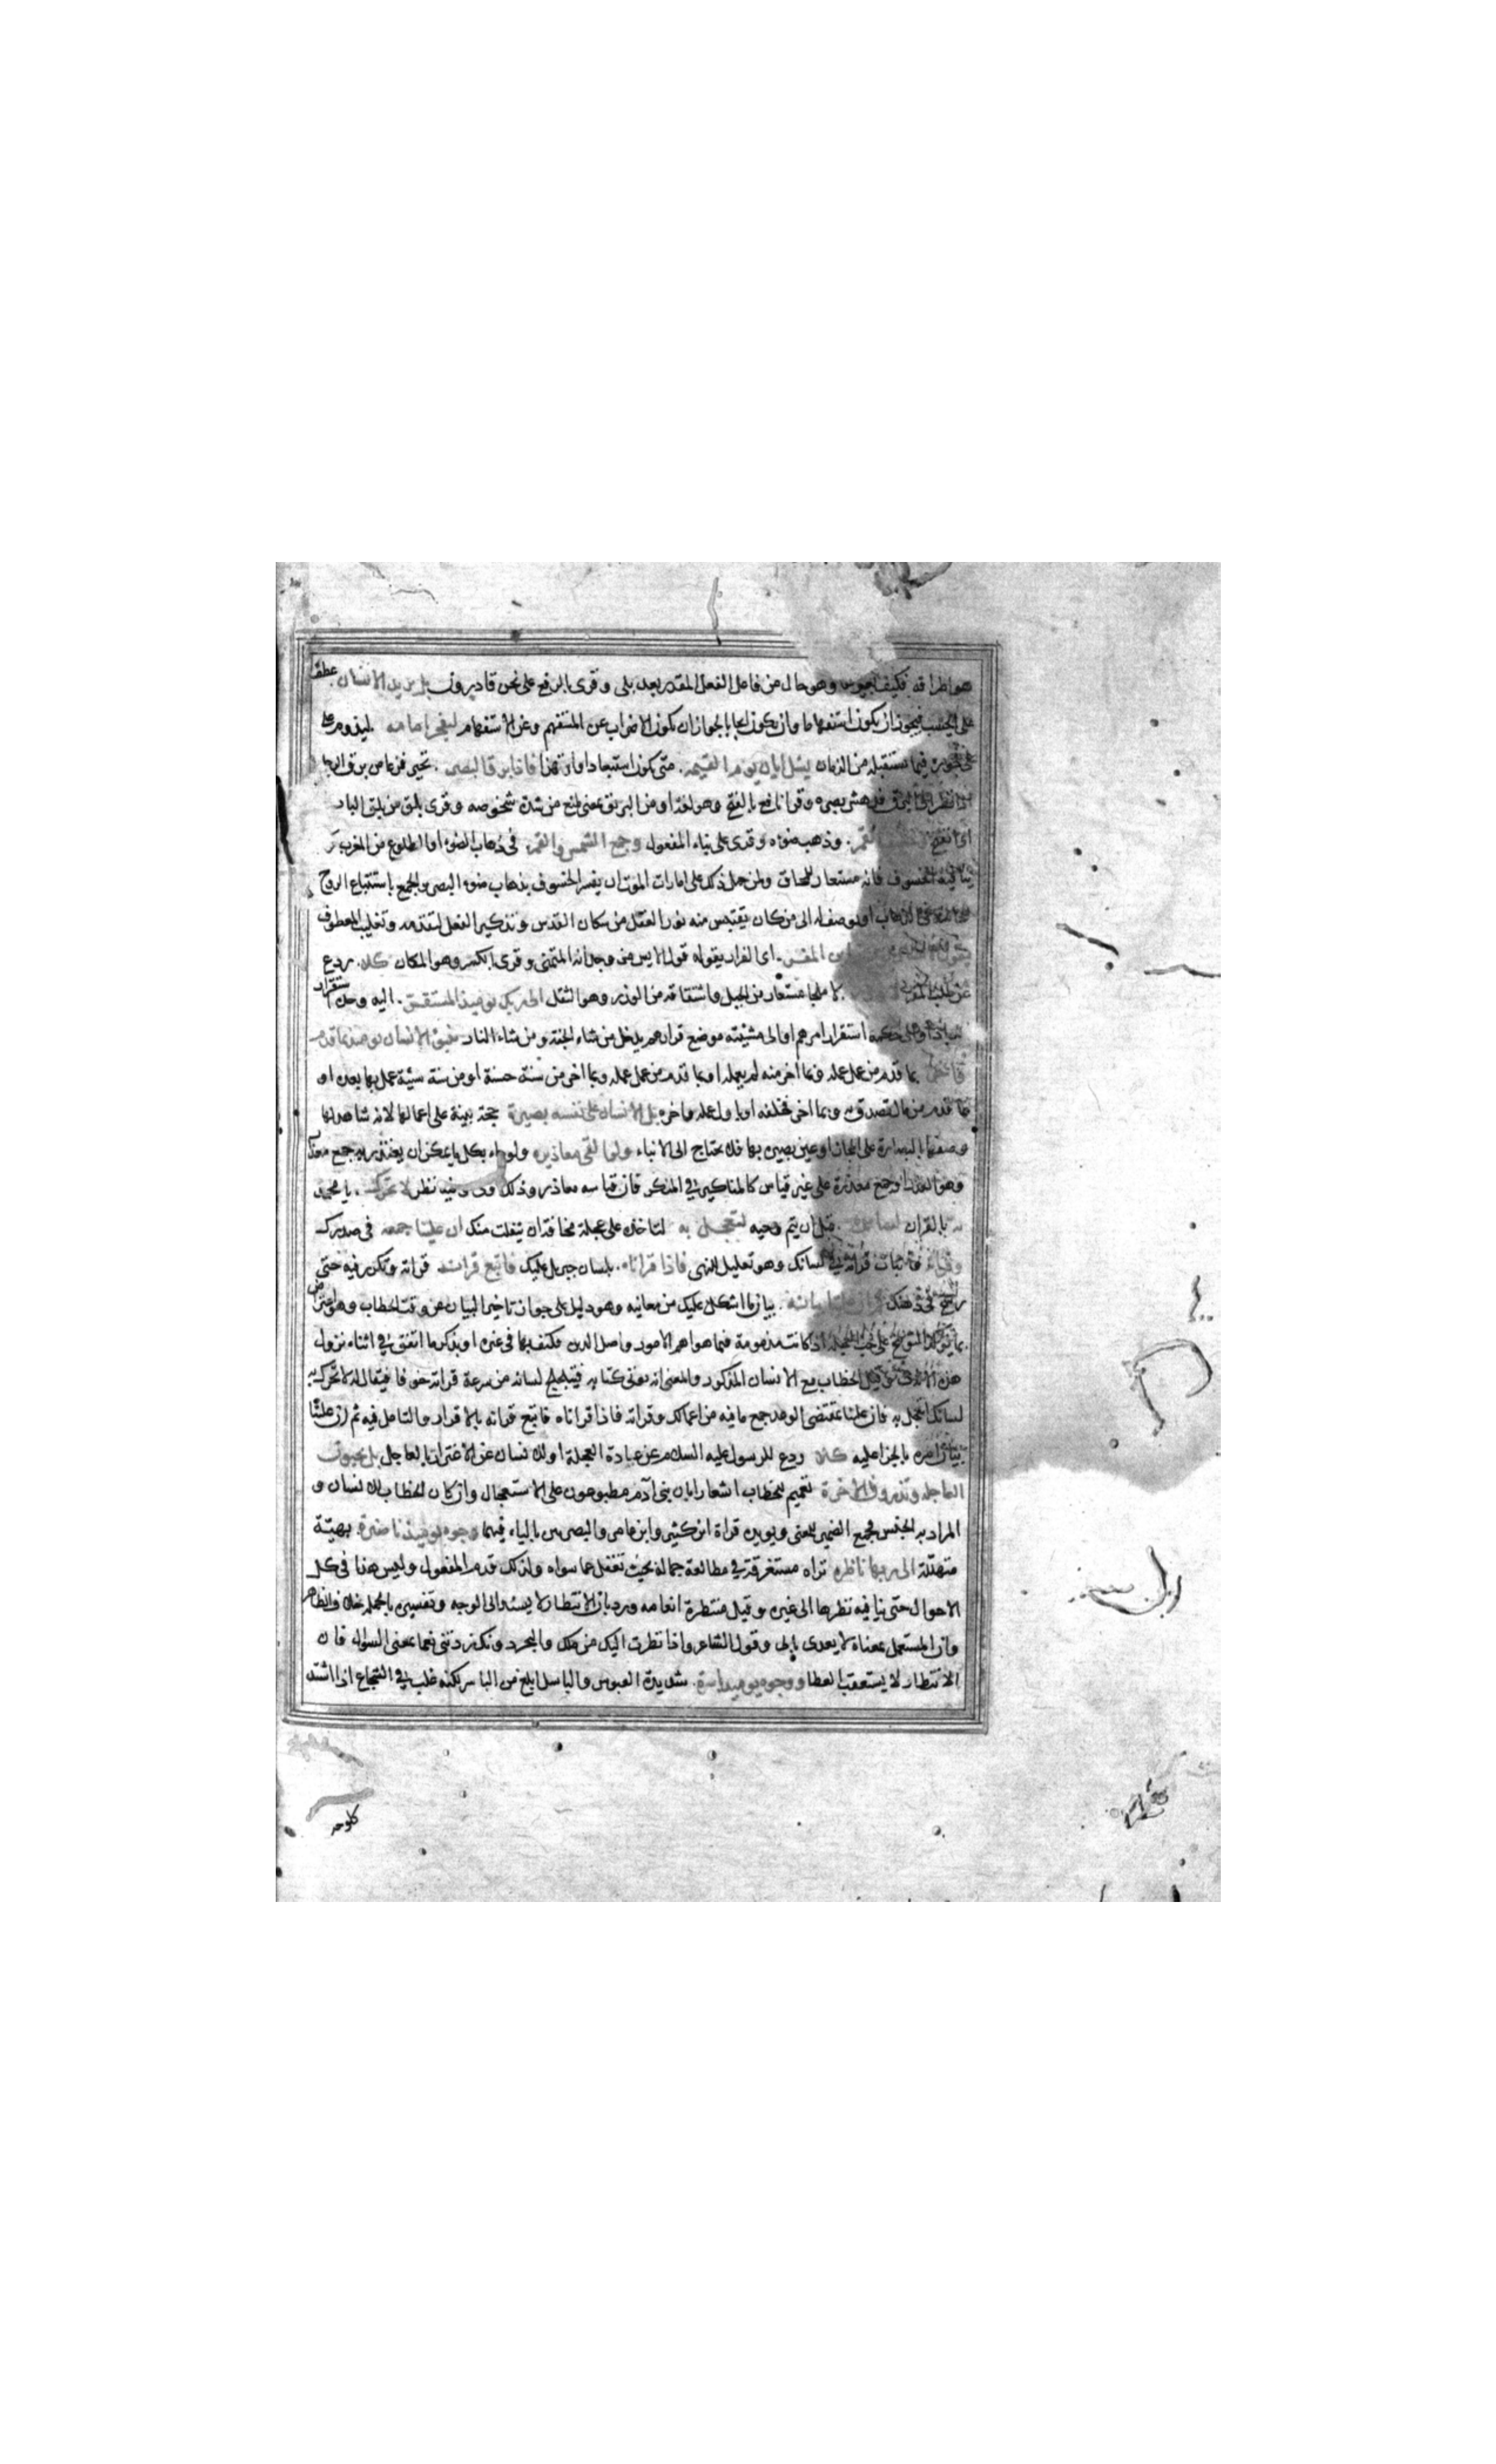 هو اطرافه فكيف بغيرها وهو حال من فاعل الفعل المقدر بعد بلى وقرئ بالرفع على نحن قادرون بل يريد الانسان عطف
على ايحسب فيجوز ان يكون استفهاما وان يكون ايجابا لجواز ان يكون الاضراب عن المستفهم وعن الاستفهام ليفجر امامه ليدوم على
فجوره فيما يستقبله من الزمان يسئل ايان يوم القيمة متى يكون استبعادا او استهزا فاذا برق البصر تحير فزعا من برق الرجل
اذا نظر الى البرق فدهش بصره وقرا نافع بالفتح وهو لغة او من البريق بمعنى لمع من شدة شخوصه وقرى بلق من بلق الباب
اى انفتح القمر وذهب ضوءه وقرى على بناء المفعول وجمع الشمس والقمر فى ذهاب الضوء او الطلوع من المغرب
ينافيه الخسوف فانه مستعار للمحاق ولمن حمل ذلك على امارات الموت ان يفسر الخسوف بذهاب ضوء البصر والجمع باستتباع الروح
الذهاب او بوصوله الى من كان يقتبس منه نور العقل من سكان القدس وتذكير الفعل لتقدمه وتغليب المعطوف
يقول الانسان اين المفر اى الفرار يقوله قول الايس من وجدانه المتمنى وقرى بالكسر وهو المكان كلا ردع
عن طلب المفر لا ملجا مستعار من الجبل واشتقاقه من الوزر وهو الثقل الى ربك يومئذ المستقر اليه وحده استقرار
او الى حكمه استقرار امرهم او الى مشيته موضع قرارهم يدخل من شاء الجنة ومن شاء النار ينبؤ الانسان يومئذ بما قدم
واخر بما قدم من عمل عمله وبما اخر منه لم يعمله او بما قدم من عمل عمله وبما اخر من سنة حسنة او من سنة سيئة عمل بها بعده او
بما قدم من مال تصدق به وبما اخر فخلفه او باول عمله واخره بل الانسان على نفسه بصيرة حجة بينة على اعمالها لانه شاهد لها
وصفها بالبصارة على المجاز او عين بصيرة بها فلا يحتاج الى الانباء ولو القى معاذيره ولو جاء بكل ما يمكن ان يعتذر به جمع معذار
وهو العذر او جمع معذرة على غير قياس كالمناكير فى المنكر فان قياسه معاذر وذلك وفيه نظر لا تحرك يا محمد
به بالقران لسانك قبل ان يتم وحيه لتعجل به لتاخذه على عجلة مخافة ان ينفلت منك ان علينا جمعه فى صدرك
وقرانه واثبات قراته فى لسانك وهو تعليل للنهى فاذا قراناه بلسان جبريل عليك فاتبع قرانه قراته وتكرر فيه حتى
يرسخ فى ذهنك ثم ان علينا بيانه بيان ما اشكل عليك من معانيه وهو دليل على جواز تاخير البيان عن وقت الخطاب وهو اعتراض
بما يؤكد التوبيخ على حب العجلة اذا كانت مذمومة فيما هو اهم الامور واصل الدين فكيف بها فى غيره او بذكر ما اتفق فى اثناء نزول
هذه الايات وقيل الخطاب مع الانسان المذكور والمعنى انه يؤتى كتابه فيتلجلج لسانه من سرعة قراته خوفا فيقال له لا تحرك به
لسانك لتعجل به فان علينا بمقتضى الوعد جمع ما فيه من اعمالك وقراته فاذا قراناه فاتبع قراته بالاقرار والتامل فيه ثم ان علينا
بيان امره بالجزا عليه كلا ردع للرسول عليه السلام عن عادة العجلة او للانسان عن الاغترار بالعاجل بل تحبون
العاجلة وتذرون الاخرة تعميم للخطاب اشعارا بان بنى آدم مطبوعون على الاستعجال وان كان الخطاب للانسان و
المراد به الجنس فجمع الضمير للمعنى ويؤيده قراة ابن كثير وابن عامر والبصريين بالياء فيهما وجوه يومئذ ناضرة بهية
متهللة الى ربها ناظرة تراه مستغرقة فى مطالعة جماله بحيث تغفل عما سواه ولذلك قدم المفعول وليس هذا فى كل
الاحوال حتى ينافيه نظرها الى غيره وقيل منتظرة انعامه ورد بان الانتظار لا يسند الى الوجه وتفسيره بالجملة خلاف الظاهر
وان المستعمل بمعناه لا يعدى بالى وقول الشاعر واذا نظرت اليك من ملك والبحر دونك زدتنى نعما بمعنى السوال فان
الانتظار لا يستعقب العطا ووجوه يومئذ باسرة شديدة العبوس والباسل ابلغ من الباسر لكنه غلب فى الشجاع اذا اشتد
كلوحه